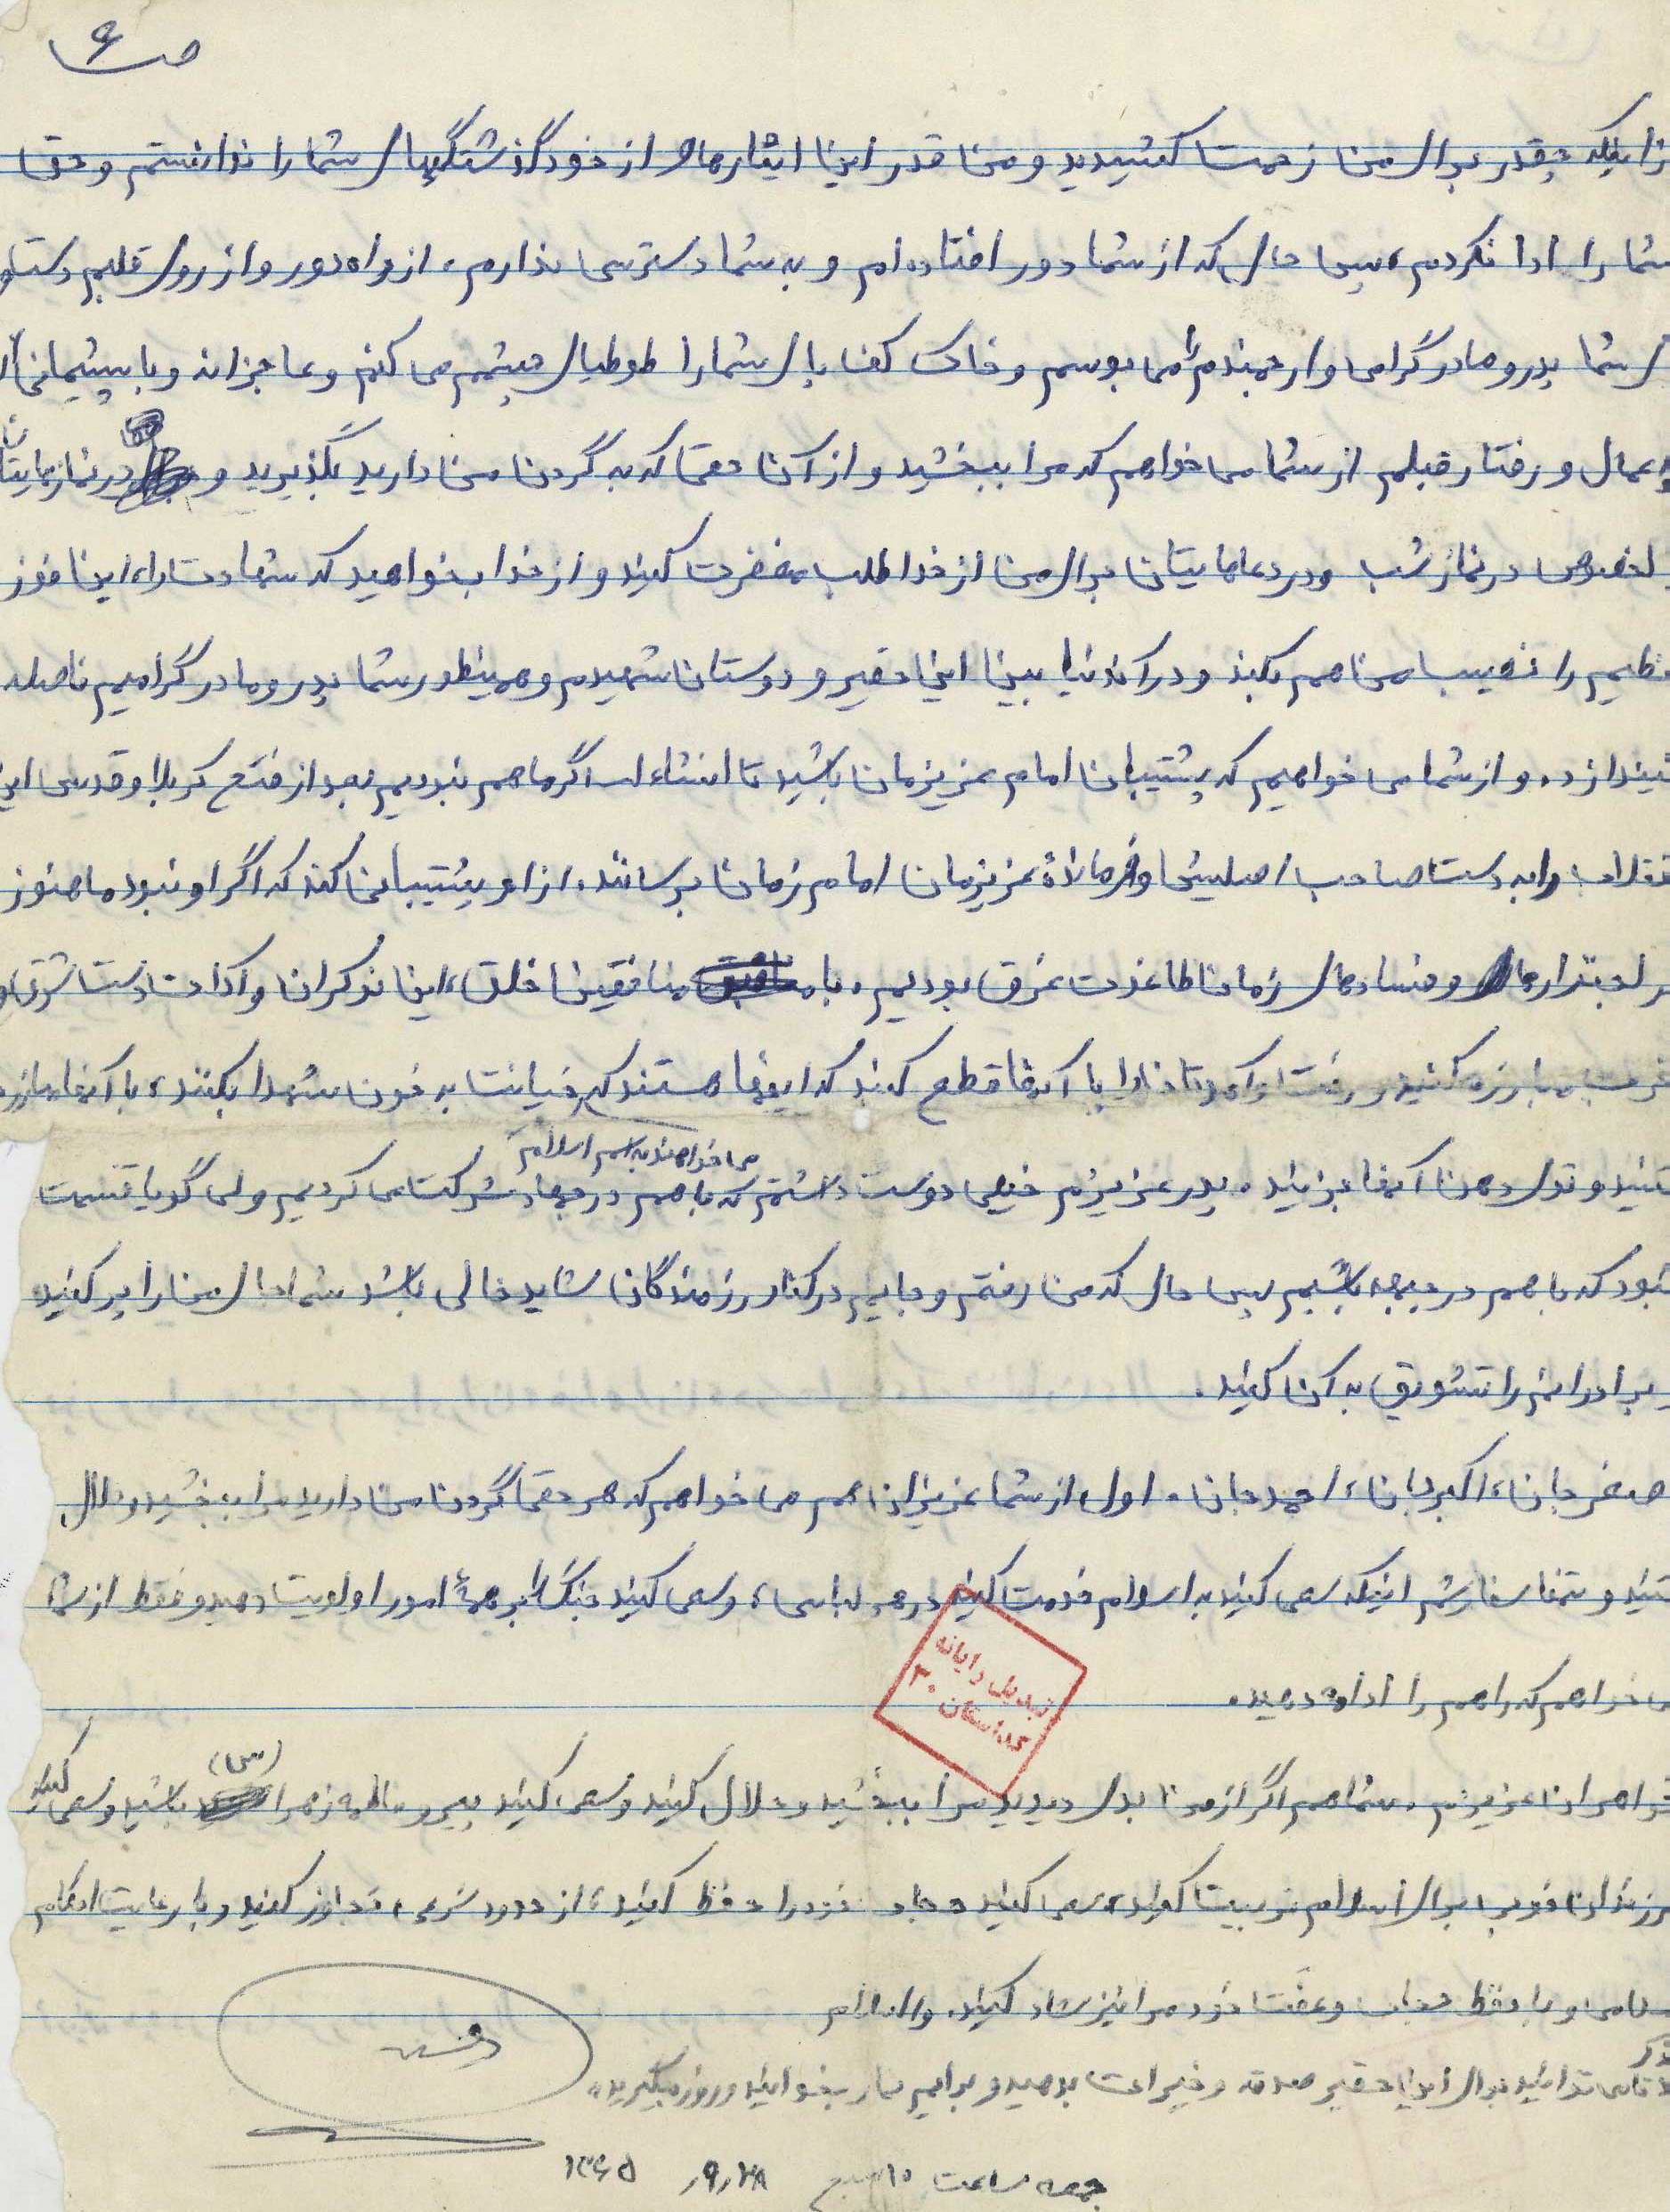 ص ۶
زاینکه چقدر برای من زحمت کشیدید و من قدر این ایثارها و از خودگذشتگیهای شما را ندانستم و حق
شما را ادا نکردم، پس حال که از شما دور افتاده ام و به شما دسترسی ندارم، از راه دور و از روی قلبم دست و
ی شما پدر و مادر گرامی و ارجمندم را می بوسم و خاک کف پای شما را طوطیای چشمم می کنم و عاجزانه و با پشیمانی از
اعمال و رفتار قبلم از شما می خواهم که مرا ببخشید و از آن حقی که به گردن من دارید بگذرید و در نمازهایتان
بالخصوص در نماز شب و در دعاهایتان برای من از خدا طلب مغفرت کنید و از خدا بخواهید که شهادت را، این فوز
عظیم را نصیب من هم بکند و در آن دنیا بین این حقیر و دوستان شهیدم و همینطور شما پدر و مادر گرامیم فاصله
نیندازد. و از شما می خواهیم که پشتیبان امام عزیزمان باشید تا انشاءالله اگر ما هم نبودیم بعد از فتح کربلا و قدس این
انقلاب را به دست صاحب اصلیش و فرمانده عزیزمان امام زمان برسانند. از او پشتیبانی کنید که اگر او نبود ما هنوز
در لجنزارها و فسادهای زمان طاغوت غرق بودیم. با منافقین خلق، این نوکران و آلت دست شرق و
غرب مبارزه کنید و رفت و آمدتان را با آنها قطع کنید که اینها هستند که خیانت به خون شهدا بکنند، با آنها مبارزه
می خواهند به اسم اسلام
کنید و توی دهن آنها بزنید. پدر عزیزم خیلی دوست داشتم که با هم در جهاد شرکت می کردیم ولی گویا قسمت
نبود که با هم در جبهه باشیم پس حال که من رفتم و جایم در کنار رزمندگان شاید خالی باشد شما جای من را پر کنید
و برادرانم را تشویق به آن کنید.
اصغر جان، اکبر جان، احمد جان. اول از شما عزیزان هم می خواهم که هر حقی گردن من دارید مرا ببخشید و حلال
کنید و تنها سفارشم اینکه سعی کنید به اسلام خدمت کنید در هر لباسی، و سعی کنید جنگ را بر همهٔ امور اولویت دهید و فقط از شما
می خواهم که راهم را ادامه دهید.
تبدیل رایانه
کد اسکان ۳۰
خواهران عزیزم. شما هم اگر از من بدی دیدید مرا ببخشید و حلال کنید و سعی کنید پیرو فاطمه زهرا (س) باشید و سعی کنید
فرزندان خوب برای اسلام تربیت کنید، سعی کنید حجاب خود را حفظ کنید، از حدود شرعی تجاوز نکنید و با رعایت احکام
اسلامی و با حفظ حجاب و عفت خود مرا نیز شاد کنید. والسلام
تذکر
تا می توانید برای این حقیر صدقه و خیرات بدهید و برایم نماز بخوانید و روزه بگیرید.
جمعه ساعت ۱۰ صبح ۹٫۲۸٫ ۱۳۶۵